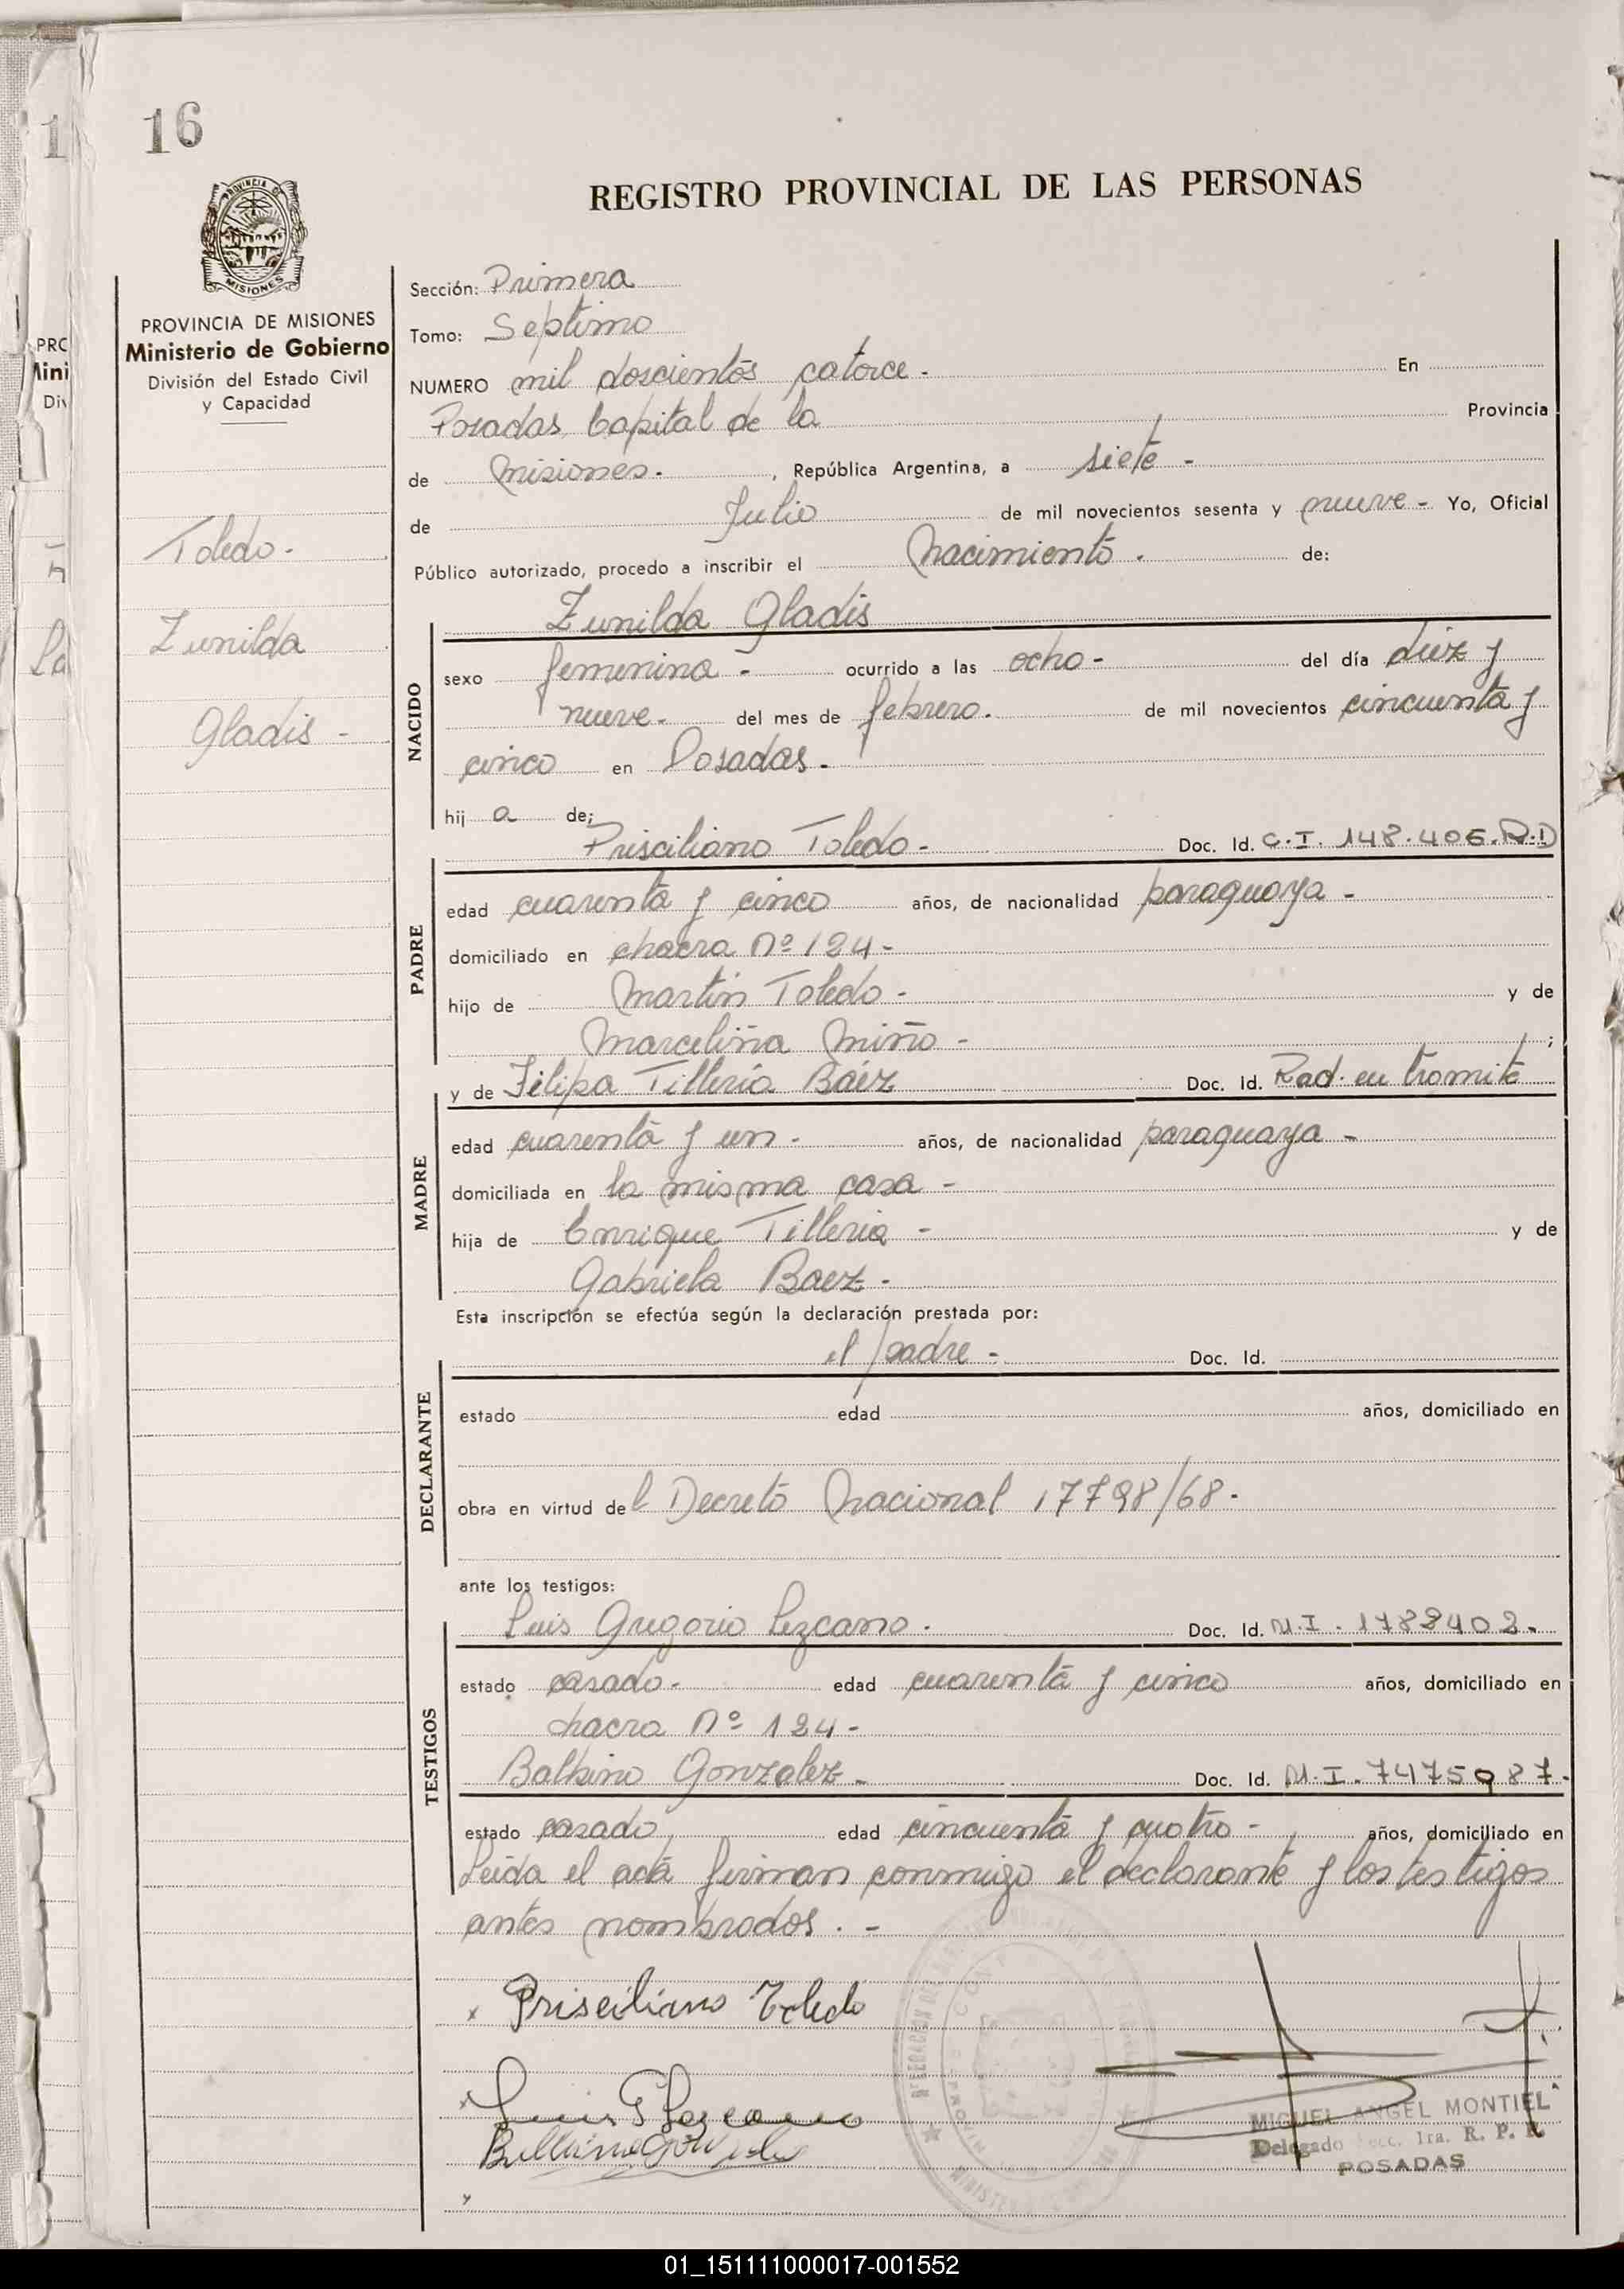 16
REGISTRO PROVINCIAL DE LAS PERSONAS
PROVINCIA D
MISIONES
PROVINCIA DE MISIONES
Ministerio de Gobierno
División del Estado Civil
y Capacidad
Toledo.-
Zunilda
Gladis -
Sección: Primera
Tomo: Septimo
NUMERO mil doscientos catorce.- En
Posadas, Capital de la Provincia
de Misiones.- , República Argentina, a siete -
de Julio de mil novecientos sesenta y nueve - Yo, Oficial
Público autorizado, procedo a inscribir el Nacimiento . de:
Zunilda Gladis
NACIDO
sexo femenina - ocurrido a las ocho - del día diez y
nueve - del mes de febrero. de mil novecientos cincuenta y
cinco en Posadas.-
hij a de;
Prisciliano Toledo - Doc. Id. C.I. 148.406.R.D
PADRE
edad cuarenta y cinco años, de nacionalidad paraguaya -
domiciliado en chacra Nº 124-
hijo de Martin Toledo - y de
Marcelina Miño - ;
y de Filipa Tillería Báez Doc. Id. Rad. en tramite
MADRE
edad cuarenta y un - años, de nacionalidad paraguaya -
domiciliada en la misma casa -
hija de Enrique Tilleria - y de
Gabriela Baez -
Esta inscripción se efectúa según la declaración prestada por:
el padre - Doc. Id.
DECLARANTE
estado edad años, domiciliado en
obra en virtud del Decreto Nacional 17798/68.-
ante los testigos:
Luis Gregorio Lezcano . Doc. Id. M.I. 1788402.-
TESTIGOS
estado casado - edad cuarenta y cinco años, domiciliado en
chacra Nº 124-
Balbino Gonzalez - Doc. Id. M.I. 7475987.-
estado casado edad cincuenta y cuatro - años, domiciliado en
Leida el acta firman conmigo el declarante y los testigos
antes nombrados . -
x Prisciliano Toledo
Luis G Lezcano
MIGUEL ANGEL MONTIEL
Delegado Secc. 1ra. R. P. P.
POSADAS
01_151111000017-001552